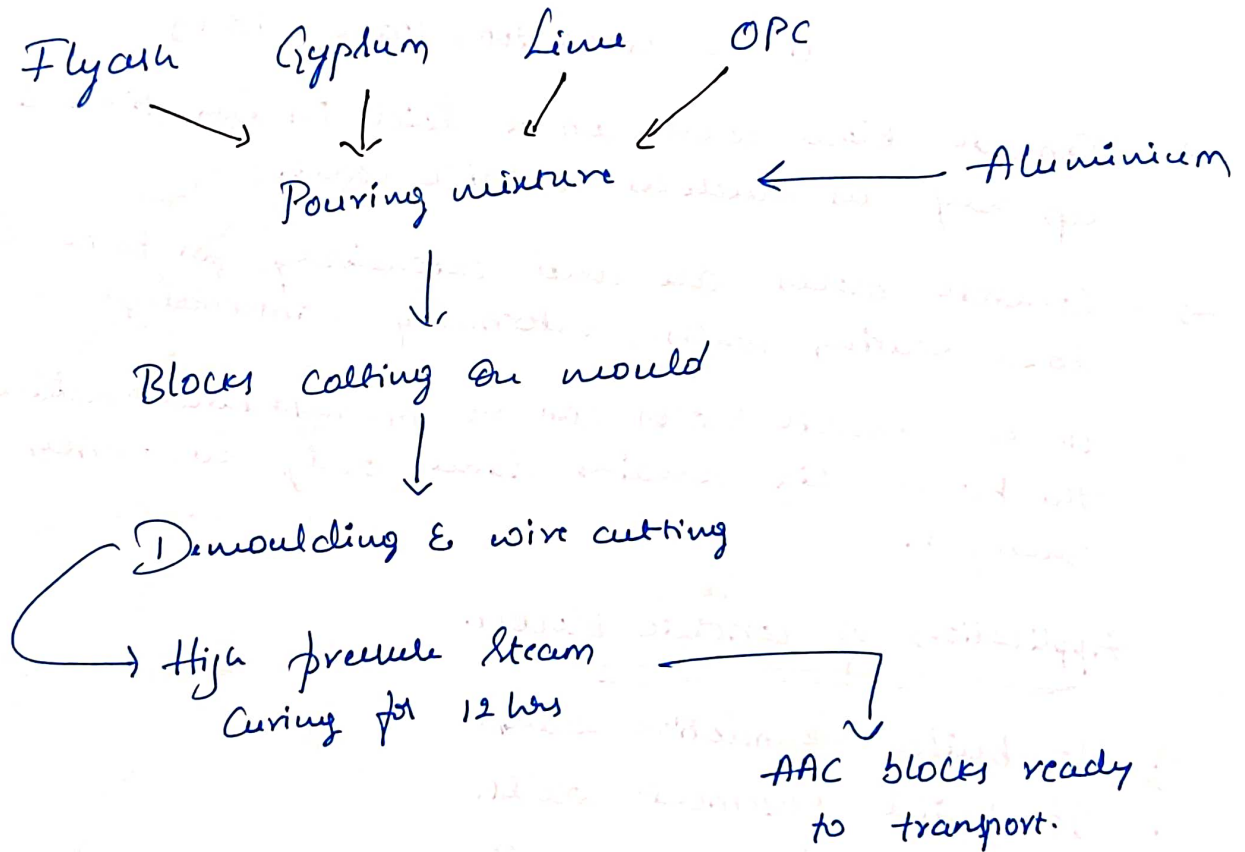 Flyash Gypsum Lime OPC
Aluminium
Pouring mixture
Blocks casting on mould
Demoulding & wire cutting
High pressure steam
Curing for 12 hrs
AAC blocks ready
to transport.